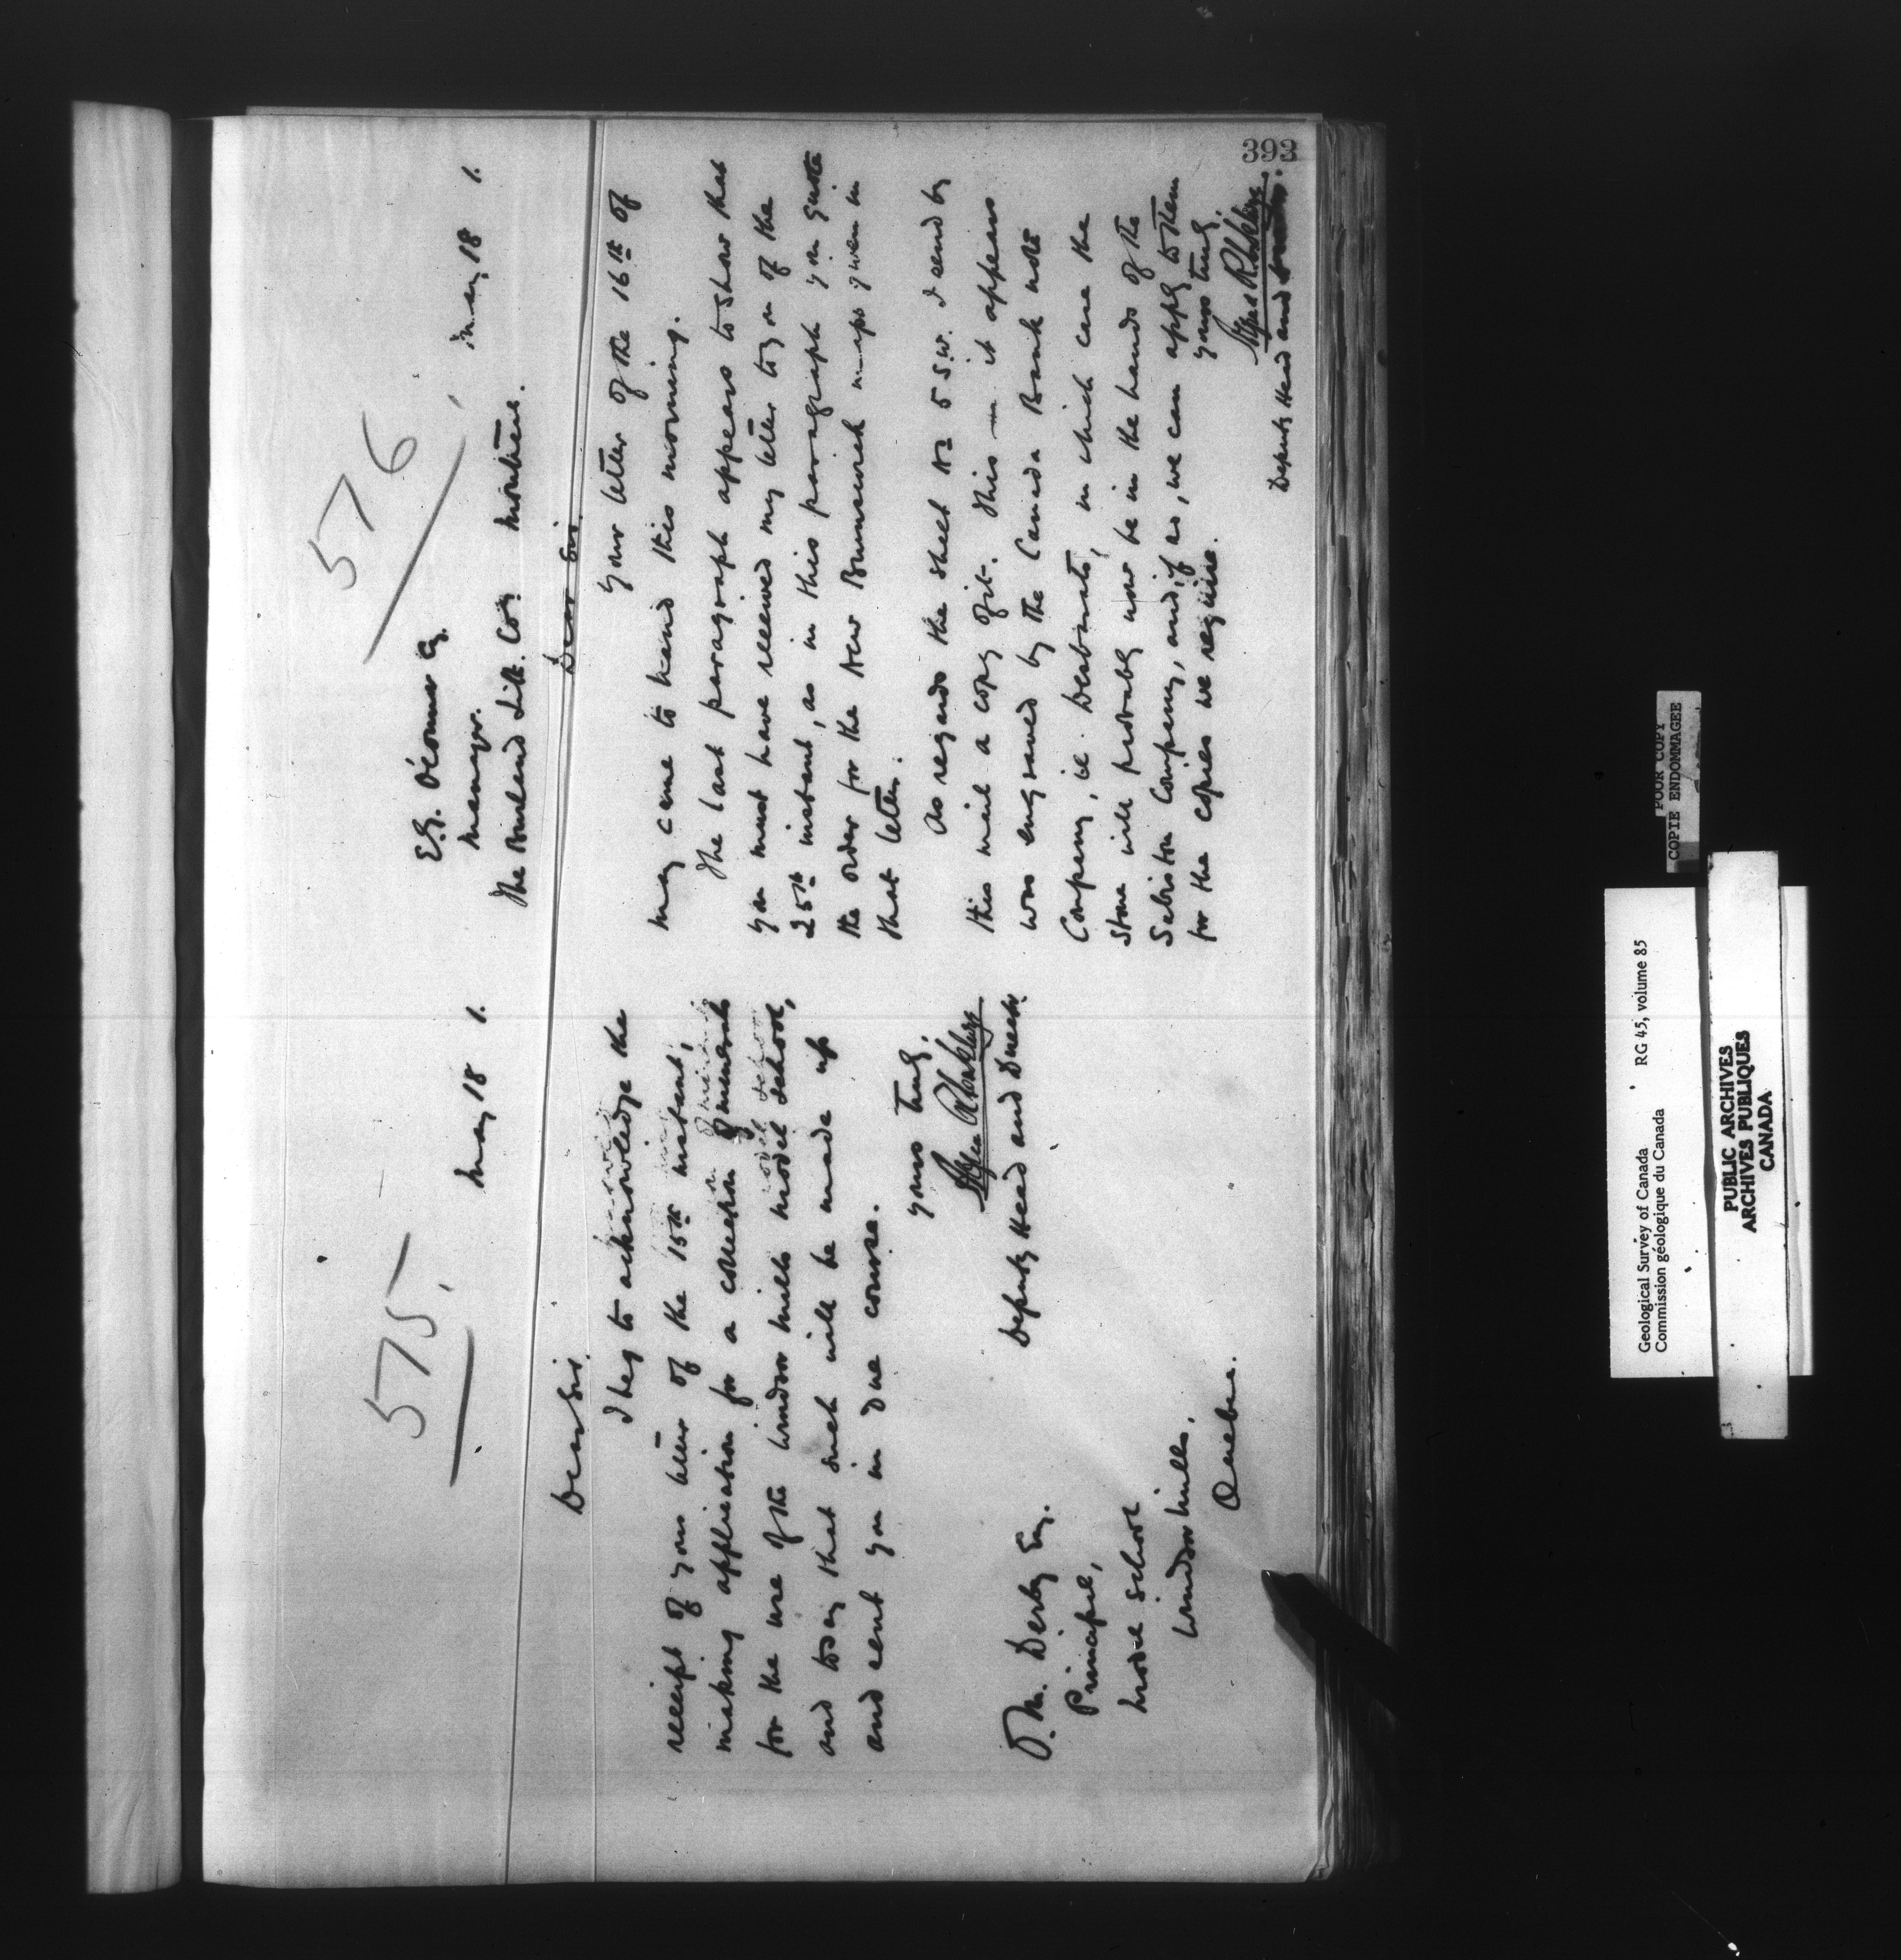 393
575.
May 18 1.
Dear Sir.
I beg to acknowledge the
receipt of your letter of the 15th instant,
making application for a collection of minerals
for the use of the Windsor Mills Model School,
and to say that such will be made up
and sent you in due course.
Yours truly,
Deputy Head and Director.
O. M. Derby Esq.
Principal,
Model School
Windsor Mills,
Quebec.
576
May 18 1.
E.G. O'Connor Esq.
Manager.
The Burland Lith. Coy Montreal.
Dear Sir.
Your letter of the 16th of
May came to hand this morning.
The last paragraph appears to show that
you must have received my letter to you of the
25th instant, as in this paragraph you quote
the order for the New Brunswick maps given in
that letter.
As regards the sheet No 5 S.W. I send by
this mail a copy of it. This it appears
was engraved by the Canada Bank note
Company, ie. Desbarats, in which case the
Stone will probably now be in the hands of the
Sabiston Company, and if so, we can apply to them
for the copies we require.
Yours truly,
Deputy Head and Director.
POOR COPY
COPIE ENDOMMAGEE
Geological Survey of Canada RG 45, volume 85
Commission géologique du Canada
PUBLIC ARCHIVES
ARCHIVES PUBLIQUES
CANADA